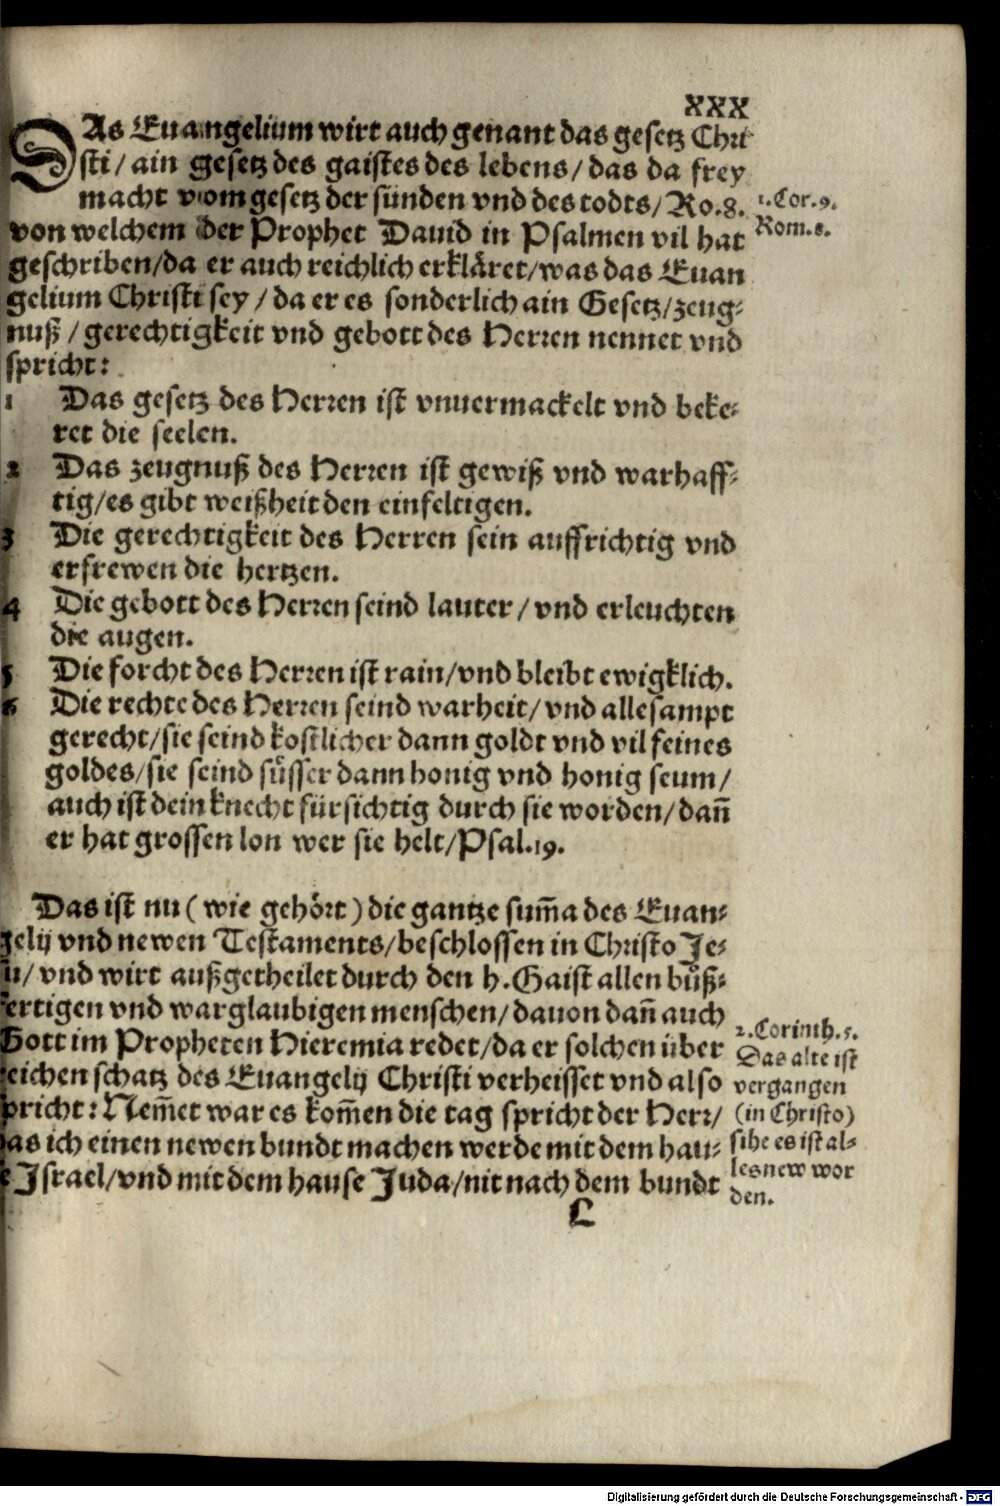 XXX
DAs Euangelium wirt auch genant das gesetz Chri
sti/ ain gesetz des gaistes des lebens/ das da frey
macht vom gesetz der sünden vnd des todts/ Ro.8.
1.Cor.9.
von welchem der Prophet Dauid in Psalmen vil hat
Rom.8.
geschriben/da er auch reichlich erkläret/was das Euan
gelium Christi sey / da er es sonderlich ain Gesetz/zeug-
nuß / gerechtigkeit vnd gebott des Herren nennet vnd
spricht:
1 Das gesetz des Herren ist vnuermackelt vnd beke-
ret die seelen.
2 Das zeugnuß des Herren ist gewiß vnd warhaff-
tig/es gibt weißheit den einfeltigen.
3 Die gerechtigkeit des Herren sein auffrichtig vnd
erfrewen die hertzen.
4 Die gebott des Herren seind lauter / vnd erleuchten
die augen.
5 Die forcht des Herren ist rain/vnd bleibt ewigklich.
6 Die rechte des Herren seind warheit/ vnd allesampt
gerecht/sie seind kostlicher dann goldt vnd vil feines
goldes/sie seind süsser dann honig vnd honig seum/
auch ist dein knecht fürsichtig durch sie worden/ dañ
er hat grossen lon wer sie helt/Psal.19.
Das ist nu ( wie gehört ) die gantze sum̃a des Euan-
gelij vnd newen Testaments/beschlossen in Christo Je-
u/ vnd wirt außgetheilet durch den h. Gaist allen bůß-
fertigen vnd warglaubigen menschen/ dauon dañ auch
Gott im Propheten Hieremia redet/da er solchen über
reichen schatz des Euangelij Christi verheisset vnd also
spricht: Nem̃et war es kom̃en die tag spricht der Herr/
das ich einen newen bundt machen werde mit dem hau-
e Israel/vnd mit dem hause Juda/nit nach dem bundt
2.Corinth.5.
Das alte ist
vergangen
(in Christo)
sihe es ist al-
les new wor
den.
L
Digitalisierung gefördert durch die Deutsche Forschungsgemeinschaft - DFG